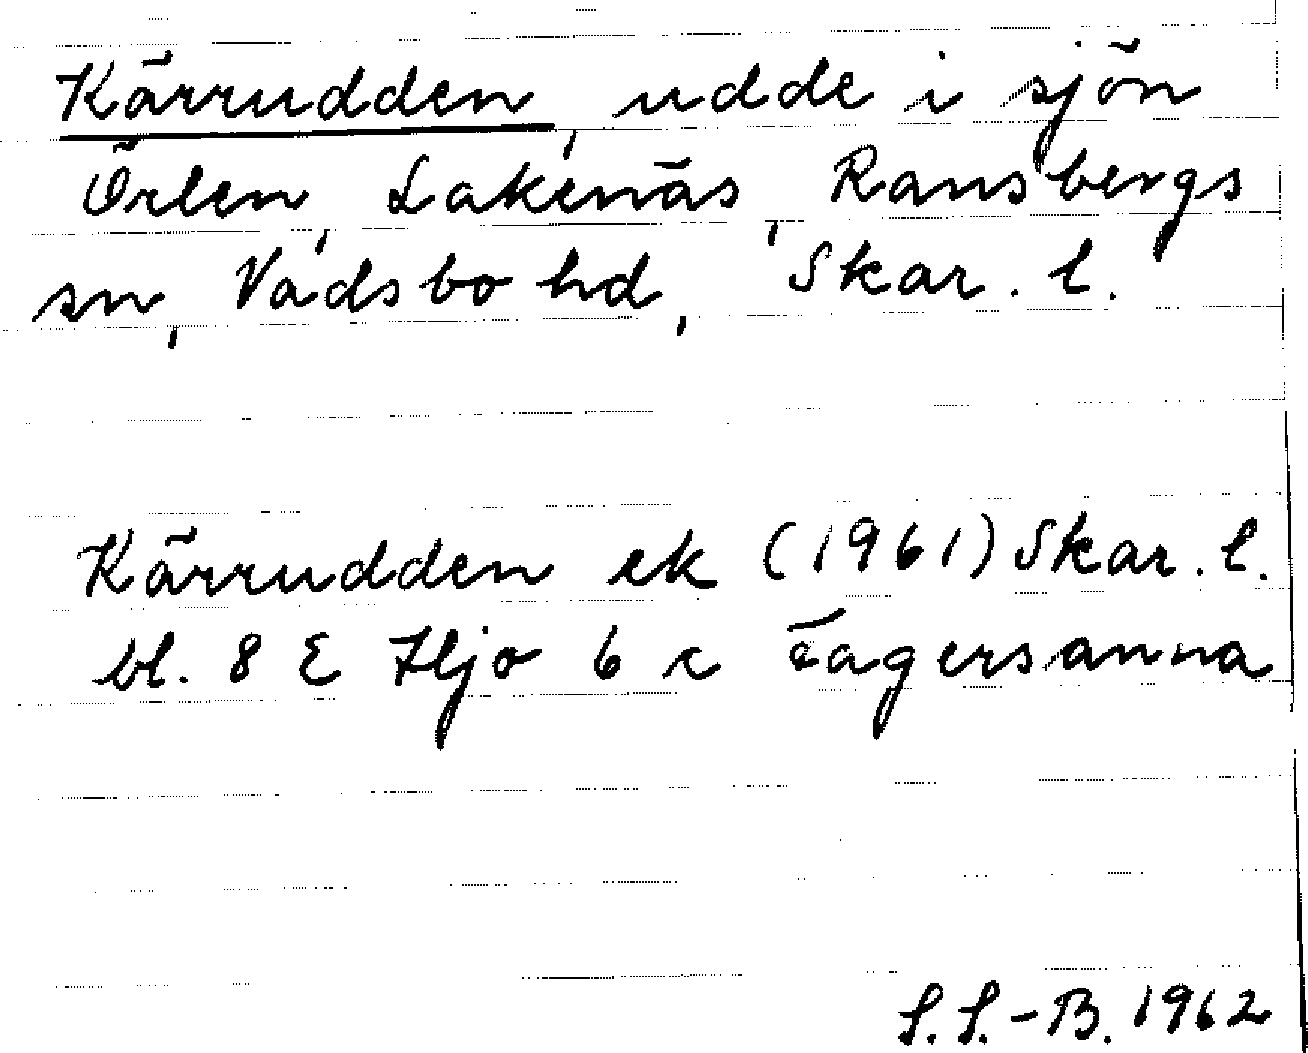 Kärrudden, udde i sjön
Örlen, Lakenäs, Ransbergs
sn, Vadsbo hd, Skar. l.
Kärrudden ek (1961) Skar. l.
bl. 8 E Hjo 6 c Fagersanna
S.S.-B. 1962